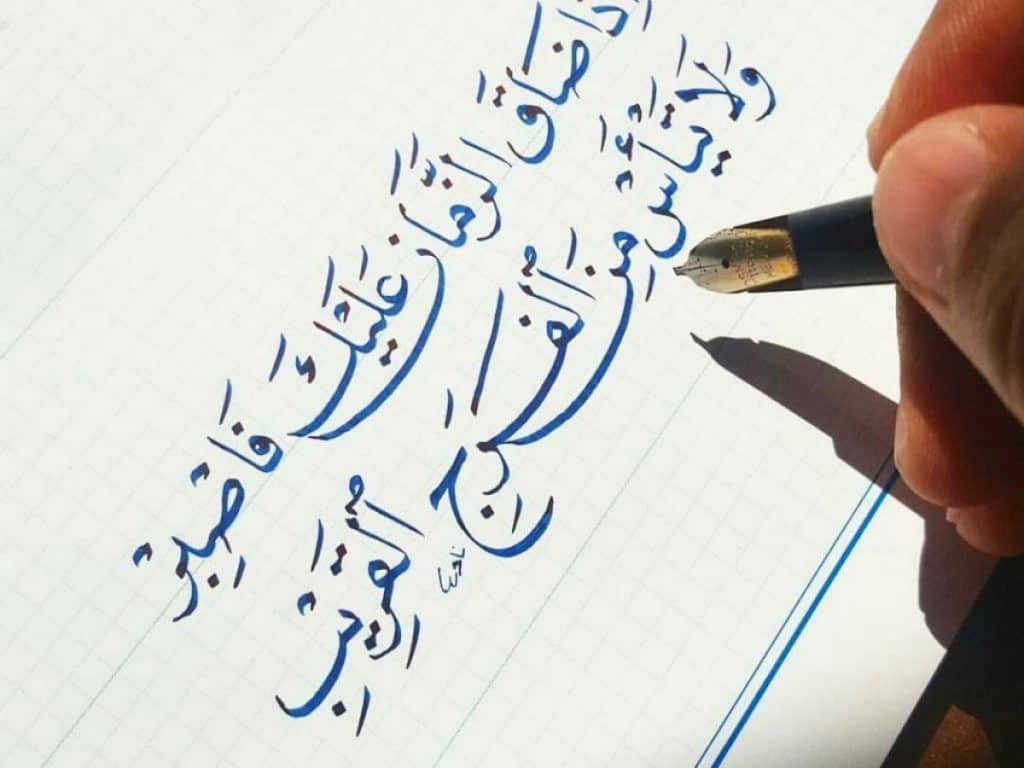 إذَا ضَاقَ الزَّمَان عَلَيْكَ فَاصْبِرْ
وَلَا تَيْأَسْ مِنَ الْفَرَجِ الْقَرِيْبِ